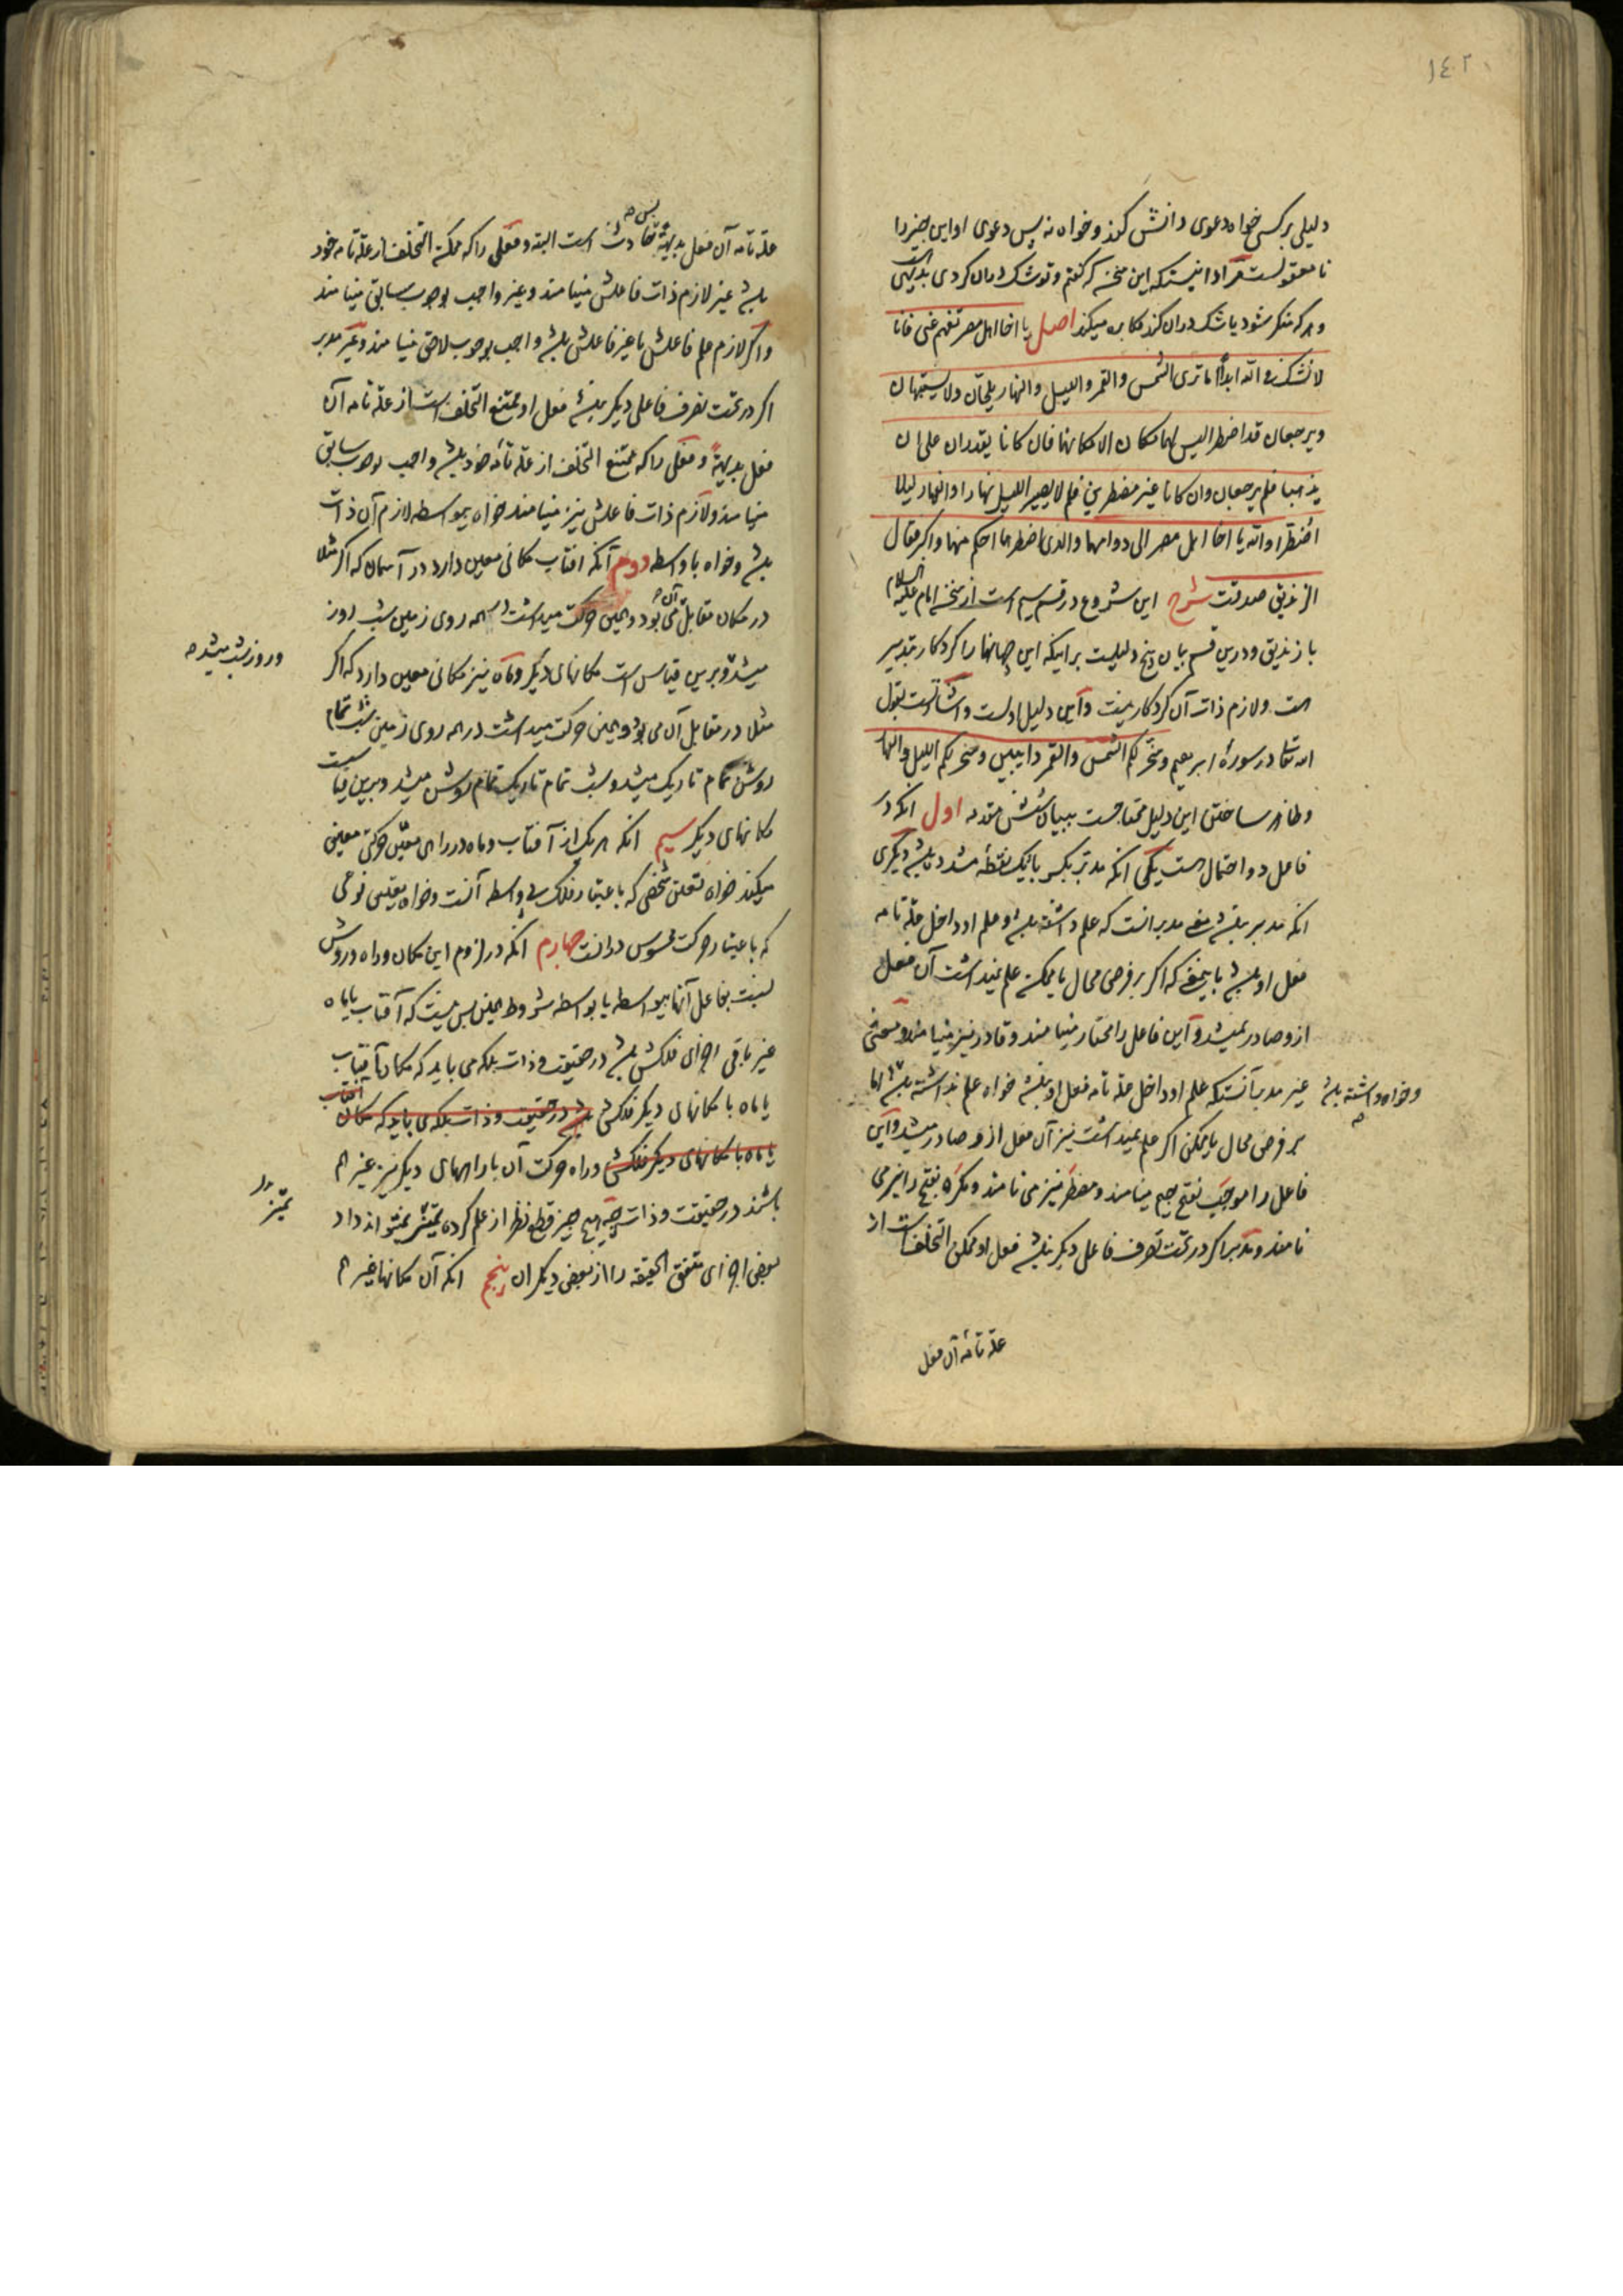 ١٤٢
دلیلی بر کسی خواه دعوی دانش کند و خواه نه پس دعوی او این چیز را
نا معقولست مراد اینستکه این سخن که گفتم و تو شک دران کردی بدیهی است
و هر که منکر شود یا شک دران کند مکابره میکند اصل یا اخا اهل مصر تفهم عنی فانا
لا نشک فی الله ابدا اما تری الشمس و القمر و اللیل و النهار یلجان و لا یشتبهان
و یرجعان قد اضطرا لیس لهما مکان الا مکانهما فان کانا یقدران علی ان
یذهبا فلم یرجعان و ان کانا غیر مضطرین فلم لا یصیر اللیل نهارا و النهار لیلا
اضطرا و الله یا اخا اهل مصر الی دوامهما و الذی اضطرهما احکم منهما و اکبر فقال
الزندیق صدقت شرح این شروع در قسم سیم است از سخن امام علیه السلام
با زندیق و درین قسم بیان پنج دلیلست بر اینکه این جهانها را کردکار بتدبیر
هست و لازم ذات آن کردکار نیست و این دلیل اولست و اشارتست بقول
الله تعالی در سورهٔ ابرهیم و سخر لکم الشمس و القمر دایبین و سخر لکم اللیل و النهار
و ظاهر ساختن این دلیل محتاجست ببیان شش مقدمه اول انکه در
فاعل دو احتمال هست یکی انکه مدبر بکسر بای یک نقطه مشدده باشد دیگری
انکه مدبر نباشد معنی مدبر انست که علم داشته باشد و علم او داخل علة تامه
فعل او باشد باینمعنی که اکر بر فرض محال یا ممکن علم نمیداشت آن فعل
ازو صادر نمیشد و این فاعل را مختار مینامند و قادر نیز مینامند و معنی
غیر مدبر آنستکه علم او داخل علة تامه فعل او نباشد خواه علم نداشته باشد اما
و خواه داشته باشد
بر فرض محال یا ممکن اکر علم نمیداشت نیز آن فعل ازو صادر میشد و این
فاعل را موجب بفتح جیم مینامند و مضطر نیز می نامند و مکره بفتح را نیز می
نامند و مدبر اکر در تحت تصرف فاعل دیگر نباشد فعل او ممکن التخلف است از
علة تامهٔ آن فعل
علة تامه آن فعل بدیهة پس حادث است البته و فعلی را که ممکن التخلف از علة تامه خود
باشد غیر لازم ذات فاعلش مینامند و غیر واجب بوجوب سابق مینامند
و اکر لازم علم فاعلش یا غیر فاعلش باشد واجب بوجوب لاحق مینامند و غیر مدبر
اکر در تحت تصرف فاعلی دیگر نباشد فعل او ممتنع التخلف است از علة تامه آن
فعل بدیهة و فعلی را که ممتنع التخلف از علة تامه خود باشد واجب بوجوب سابق
مینامند و لازم ذات فاعلش نیز مینامند خواه بیواسطه لازم آن ذات
باشد و خواه با واسطه دوم آنکه افتاب مکانی معین دارد در آسمان که اکر مثلا
در مکان مقابل آن می بود و همین حرکت میداشت همه روی زمین شب روز
و روز شب میشد
میشد و برین قیاس است مکانهای دیگر و ماه نیز مکانی معین دارد که اکر
مثلا در مقابل آن می بود و همین حرکت میداشت در همه روی زمین شب تمام
روشن تمام تاریک میشد و شب تمام تاریک تمام روشن میشد و برین قیاست
مکانهای دیگر سیم انکه هر یک از آفتاب و ماه در راهی معین حرکتی معین
میکند خواه تعلق شخصی که باعتبار فلک بی واسطه آنست و خواه تعلق نوعی
که باعتبار حرکت محسوس در انست چهارم انکه در لزوم این مکان و راه و روش
نسبت بفاعل آنها بیواسطه یا بواسطه شروط همین بس نیست که آفتاب یا ماه
غیر باقی اجزای فلکش باشد در حقیقت و ذات بلکه می باید که مکان آفتاب
یا ماه با مکانهای دیگر فلکش باشد در حقیقت و ذات بلکه می باید که مکان آفتاب
یا ماه با مکانهای دیگر فلکش و راه حرکت آن با راههای دیگر نیز غیر هم
باشند در حقیقت و ذات چه هیچ چیز قطع نظر از علم کرده تمیز نمیتواند داد
تمیز
بعض اجزای متفق الحقیقه را از بعض دیگر ان پنجم انکه آن مکانها غیر هم